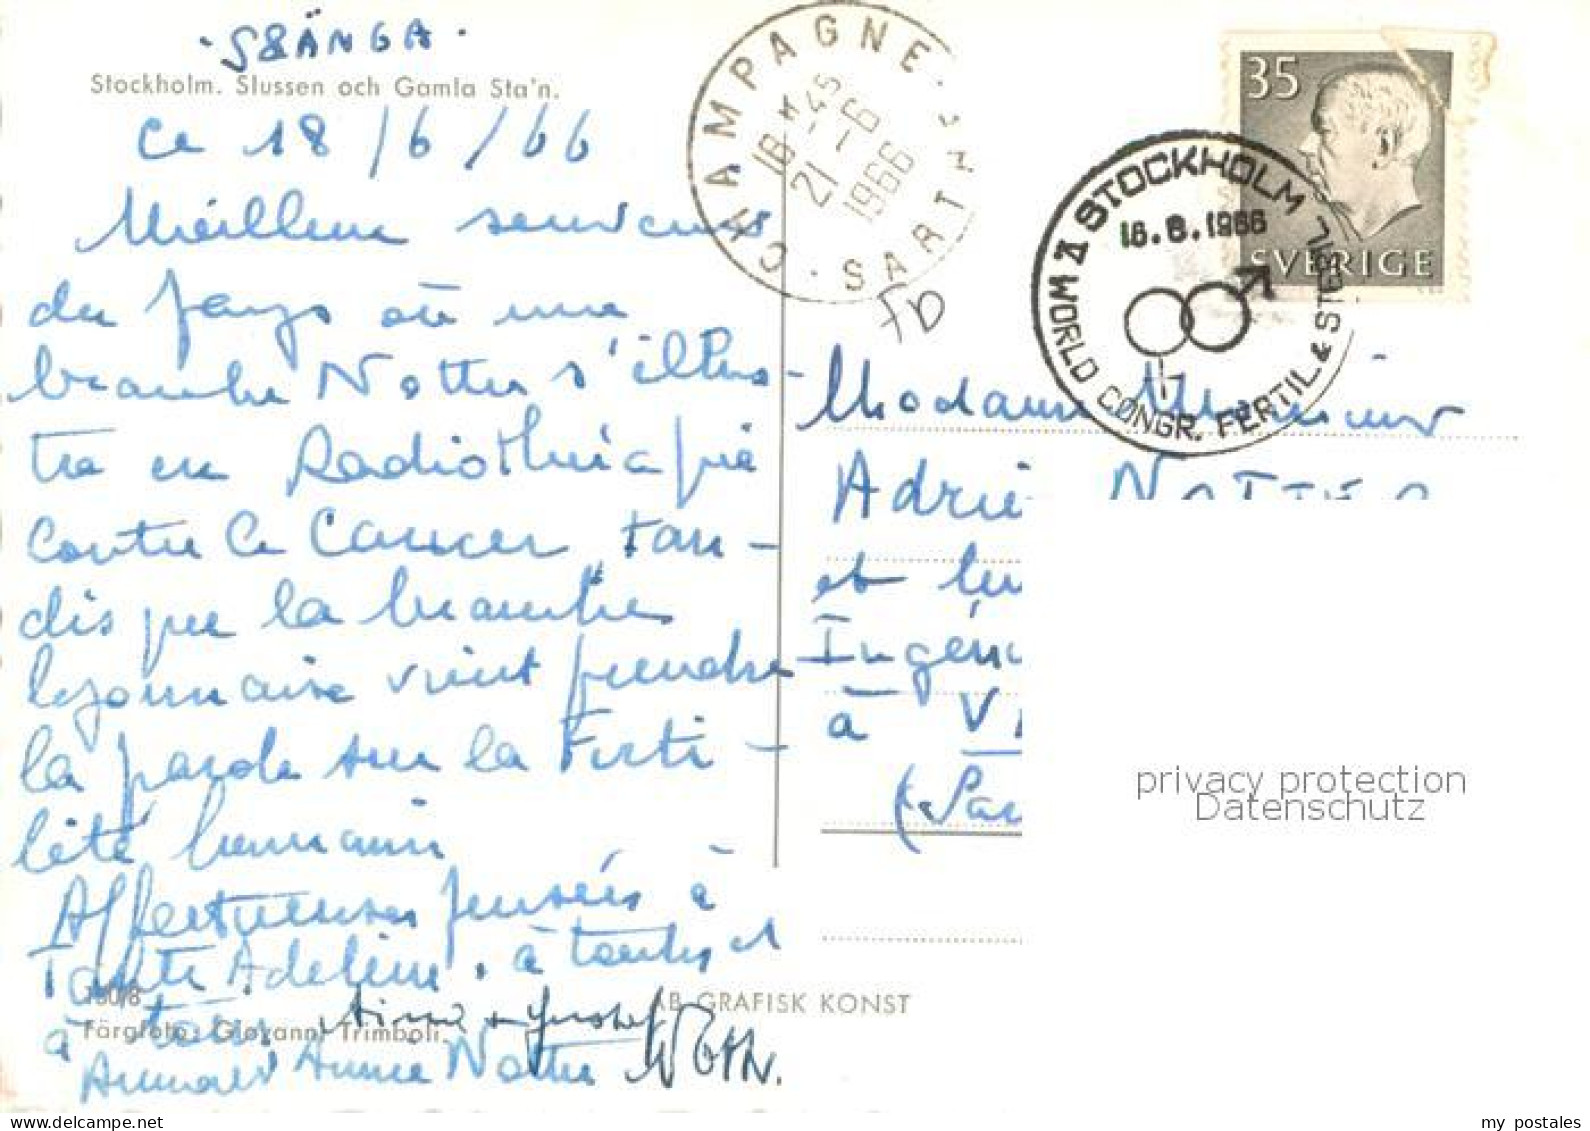 Stockholm. Slussen och Gamla Sta'n.
Ce 18/6/66
Meilleur souvenir
du pays où une
branche Notter s'illus-
tre en Radiothérapie
contre le Cancer, tan-
dis que la branche
lyonnaise vient prendre
la parole sur la Ferti-
lité humaine
Affectueuses pensées à
Tante Adeline, à toutes et
à tous,
Annie Notter
180/8
Färgfoto: Giovanni Trimboli.
AB GRAFISK KONST
CHAMPAGNÉ
18 H 45
21-6
1966
SARTHE
35
SVERIGE
STOCKHOLM
16.6.1966
WORLD CONGR. FERTIL & STERIL
Madame Monsieur
Adrie
et leu
Ingén
à
privacy protection
Datenschutz
my postales